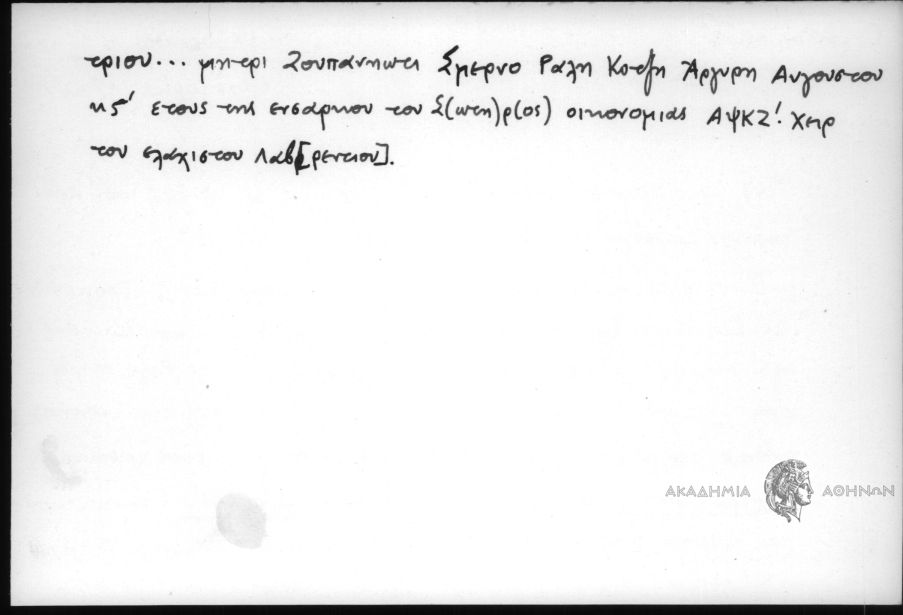 τριου... μητερι Ζουπανηωτι Σμερνο Ραλη Κοτζη Αργυρη Αυγουστου
κς' ετους της ενσαρκου του Σ(ωτη)ρ(ος) οικονομιας ΑΨΚΖ'. Χειρ
του ελαχιστου Λαβ[ρεντιου].
ΑΚΑΔΗΜΙΑ ΑΘΗΝΩΝ